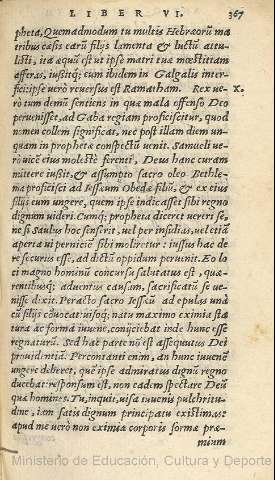 LIBER VI. 367
pheta, Quemadmodum tu multis Hebræorū ma
tribus cæsis earū filijs lamenta & luctū attu-
listi, ita æquū est ut ipse matri tuæ mœstitiam
afferas, iußitq; eum ibidem in Galgalis inter-
fici: ipse verò reuersus est Ramatham. Rex ve- X.
rò tum demū sentiens in quæ mala offenso Deo
peruenisset, ad Gaba regiam proficiscitur, quod
nomen collem significat, nec post illam diem un-
quam in prophetæ conspectū venit. Samueli ve-
rò vicē eius molestè ferenti, Deus hanc curam
mittere iußit, & assumpto sacro oleo Bethle-
ma proficisci ad Iessæum Obedæ filiū, & ex eius
filijs eum ungere, quem ipse indicasset sibi regno
dignum videri. Cumq; propheta diceret vereri se,
ne si Saulus hoc senserit, uel per insidias, uel etiā
aperta ui perniciē sibi moliretur: iussus hac de
re securus esse, ad dictū oppidum peruenit. Eo lo
ci magno hominū concursu salutatus est, quæ-
rentibusq; aduentus causam, sacrificatū se ue-
nisse dixit. Peracto sacro Iessæū ad epulas unà
cū filijs cōuocat: uisoq; natu maximo eximia sta
tura ac forma iuuene, conijciebat inde hunc esse
regnaturū. Sed hac parte nō est assequutus Dei
prouidentiā. Percontanti enim, an hunc iuuenē
ungere deberet, quē ipse admiratus dignū regno
ducebat: responsum est, non eadem spectare Deū
quæ homines. Tu, inquit, uisa iuuenis pulchritu-
dine, iam satis dignum principatu existimas: ac
apud me verò non eximiæ corporis formæ præ-
mium
Ministerio de Educación, Cultura y Deporte